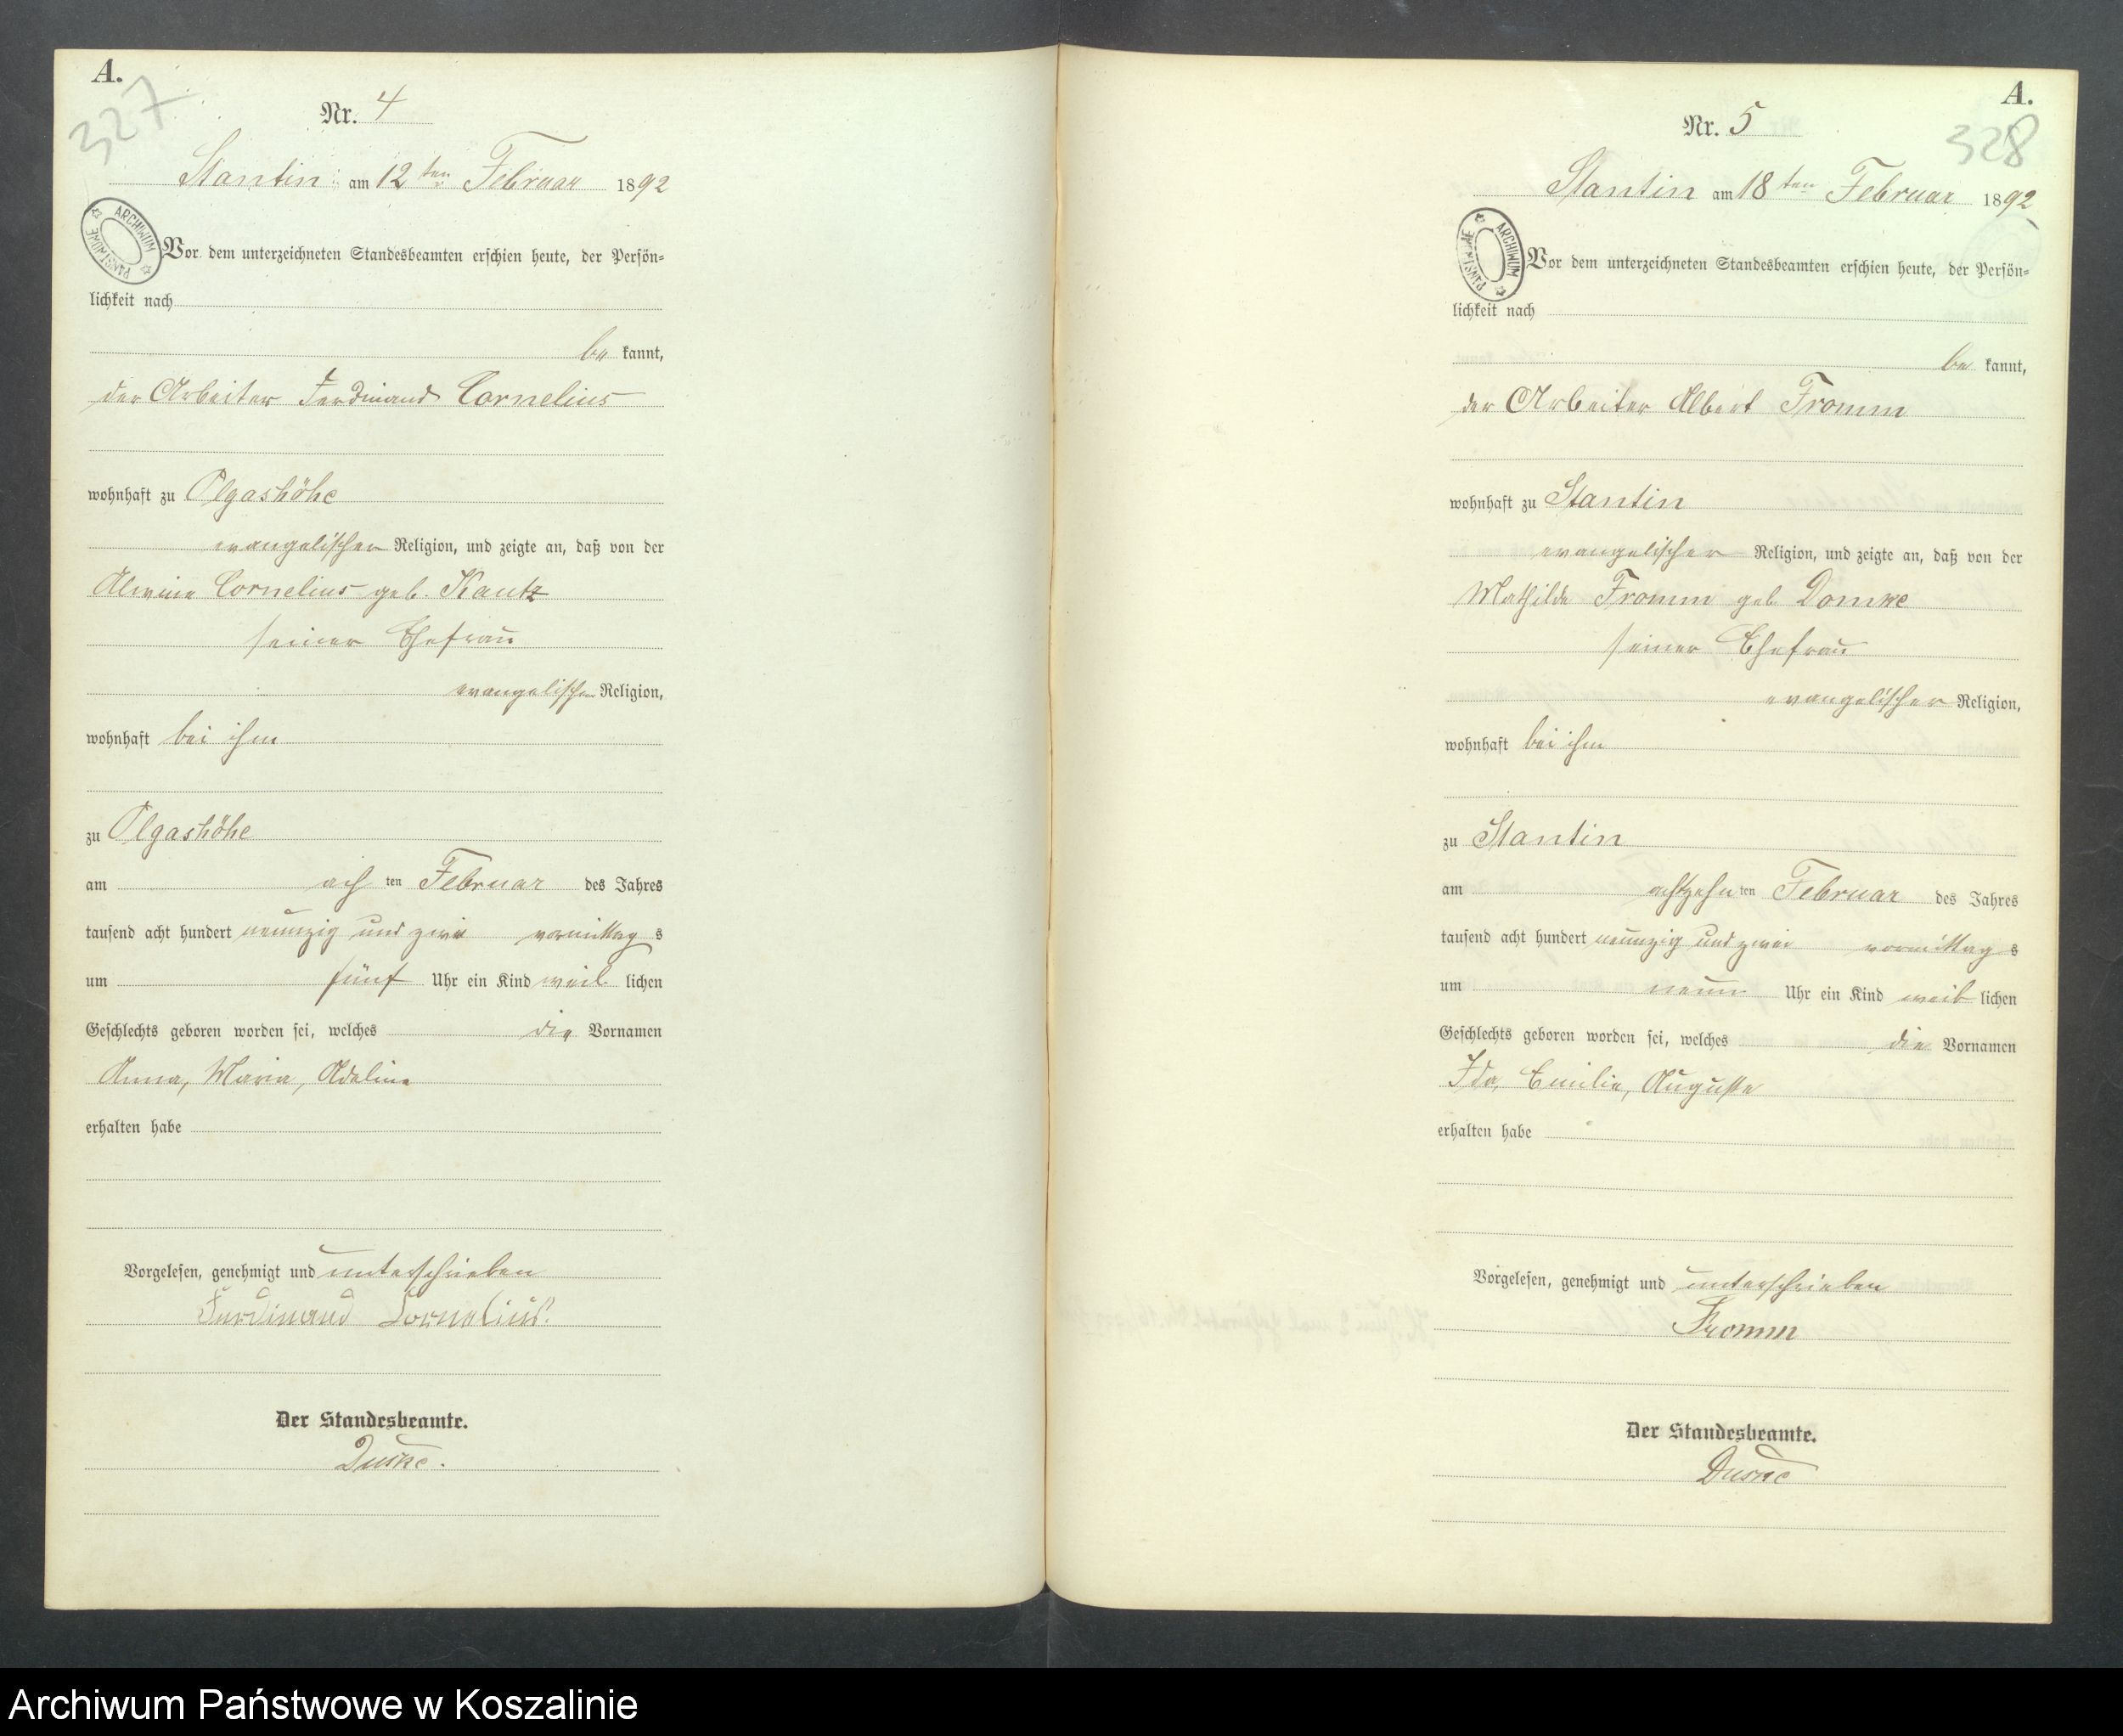 A.
327
Nr. 4
Stantin am 12ten Februar 1892
ARCHIWUM PAŃSTWOWE
Vor dem unterzeichneten Standesbeamten erschien heute, der Persön-
lichkeit nach
be kannt,
der Arbeiter Ferdinand Cornelius
wohnhaft zu Olgashöhe
evangelischer Religion, und zeigte an, daß von der
Alwine Cornelius geb. Kautz
seiner Ehefrau
evangelischer Religion,
wohnhaft bei ihm
zu Olgashöhe
am ach ten Februar des Jahres
tausend acht hundert neunzig und zwei vormittag s
um fünf Uhr ein Kind weib lichen
Geschlechts geboren worden sei, welches die Vornamen
Anna, Maria, Adeline
erhalten habe
Vorgelesen, genehmigt und unterschrieben
Ferdinand Cornelius.
Der Standesbeamte.
Duske.
A.
328
Nr. 5
Stantin am 18ten Februar 1892
ARCHIWUM PAŃSTWOWE
Vor dem unterzeichneten Standesbeamten erschien heute, der Persön-
lichkeit nach
be kannt,
der Arbeiter Albert Fromm
wohnhaft zu Stantin
evangelischer Religion, und zeigte an, daß von der
Mathilde Fromm geb Domke
seiner Ehefrau
evangelischer Religion,
wohnhaft bei ihm
zu Stantin
am achtzehn ten Februar des Jahres
tausend acht hundert neunzig und zwei vormittag s
um neun Uhr ein Kind weib lichen
Geschlechts geboren worden sei, welches die Vornamen
Ida, Emilie, Auguste
erhalten habe
Vorgelesen, genehmigt und unterschrieben
Fromm
Der Standesbeamte.
Duske
Archiwum Państwowe w Koszalinie